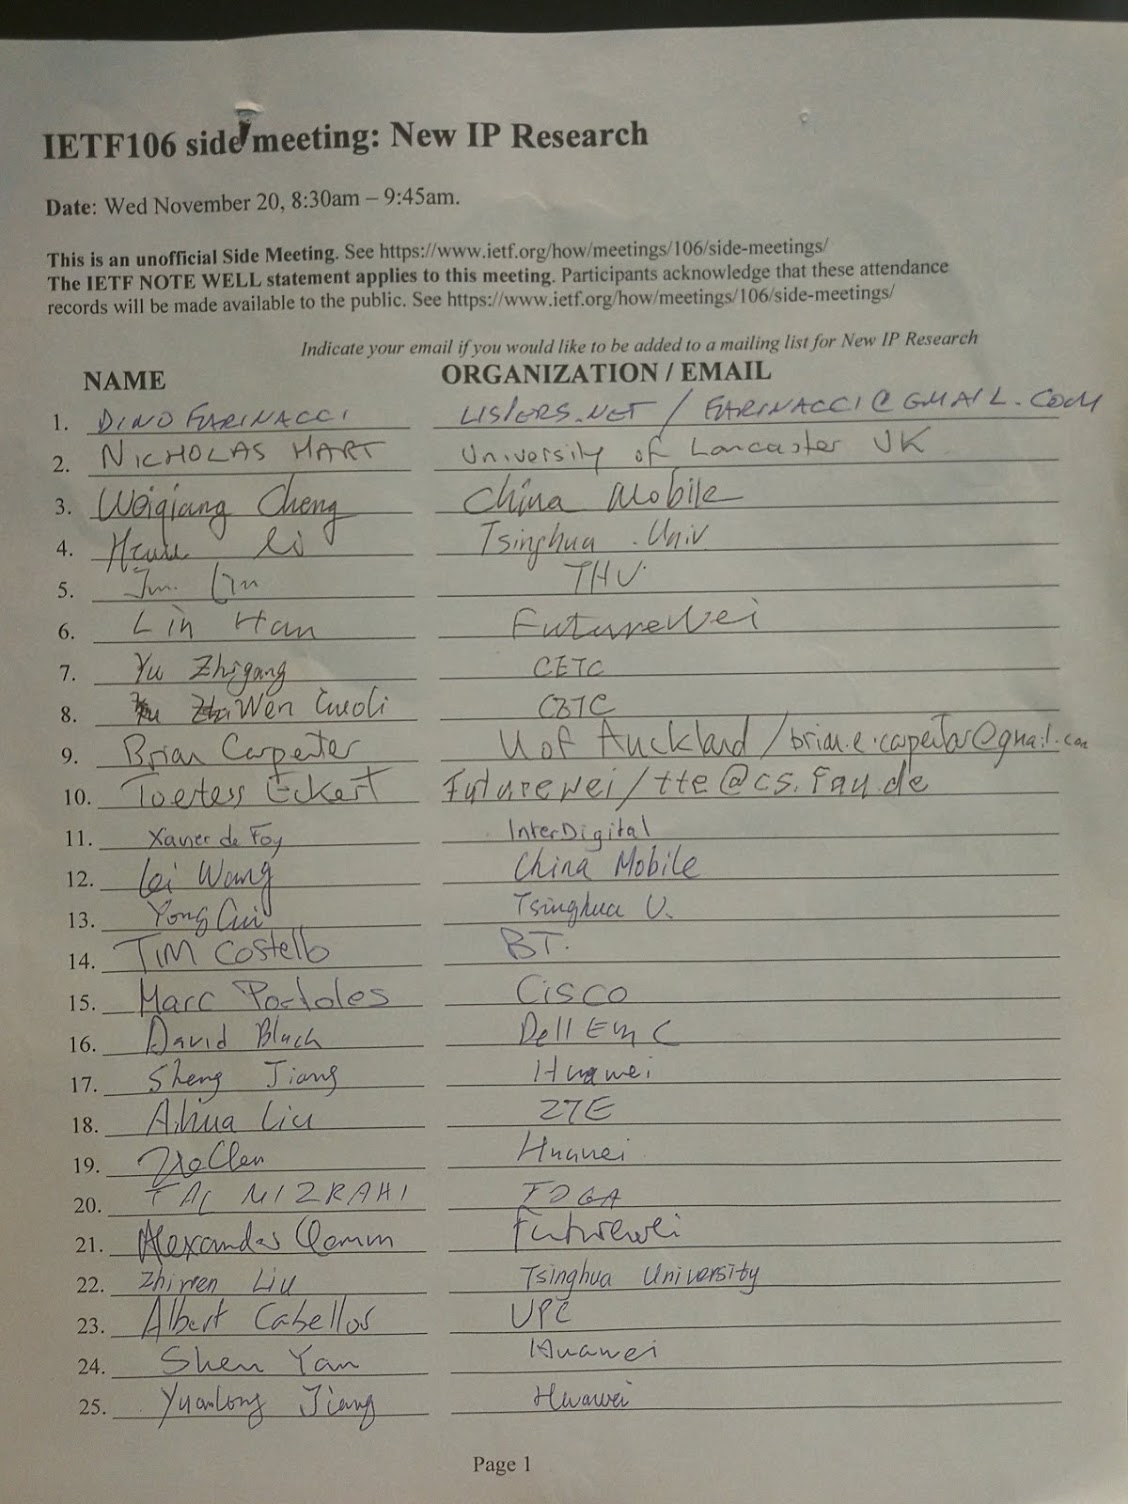 IETF106 side meeting: New IP Research
Date: Wed November 20, 8:30am – 9:45am.
This is an unofficial Side Meeting. See https://www.ietf.org/how/meetings/106/side-meetings/
The IETF NOTE WELL statement applies to this meeting. Participants acknowledge that these attendance
records will be made available to the public. See https://www.ietf.org/how/meetings/106/side-meetings/
Indicate your email if you would like to be added to a mailing list for New IP Research
NAME ORGANIZATION / EMAIL
1. DINO FARINACCI LISPERS.NET / FARINACCI@GMAIL.COM
2. NICHOLAS HART University of Lancaster UK
3. Weiqiang Cheng China Mobile
4. Li Tsinghua Univ
5. THU
6. Lin Han FutureWei
7. Yu Zhigang CETC
8. Wen Guoli CETC
9. Brian Carpenter U of Auckland / brian.e.carpenter@gmail.com
10. Toerless Eckert Futurewei / tte@cs.fau.de
11. Xavier de Foy InterDigital
12. Lei Wang China Mobile
13. Yong Cui Tsinghua U.
14. TIM Costello BT.
15. Marc Portoles Cisco
16. David Black Dell EMC
17. Sheng Jiang Huawei
18. Aihua Liu ZTE
19. Huawei
20. TAL MIZRAHI
21. Alexander Clemm Futurewei
22. Liu Tsinghua University
23. Albert Cabellos UPC
24. Shen Yan Huawei
25. Yuanlong Jiang Huawei
Page 1